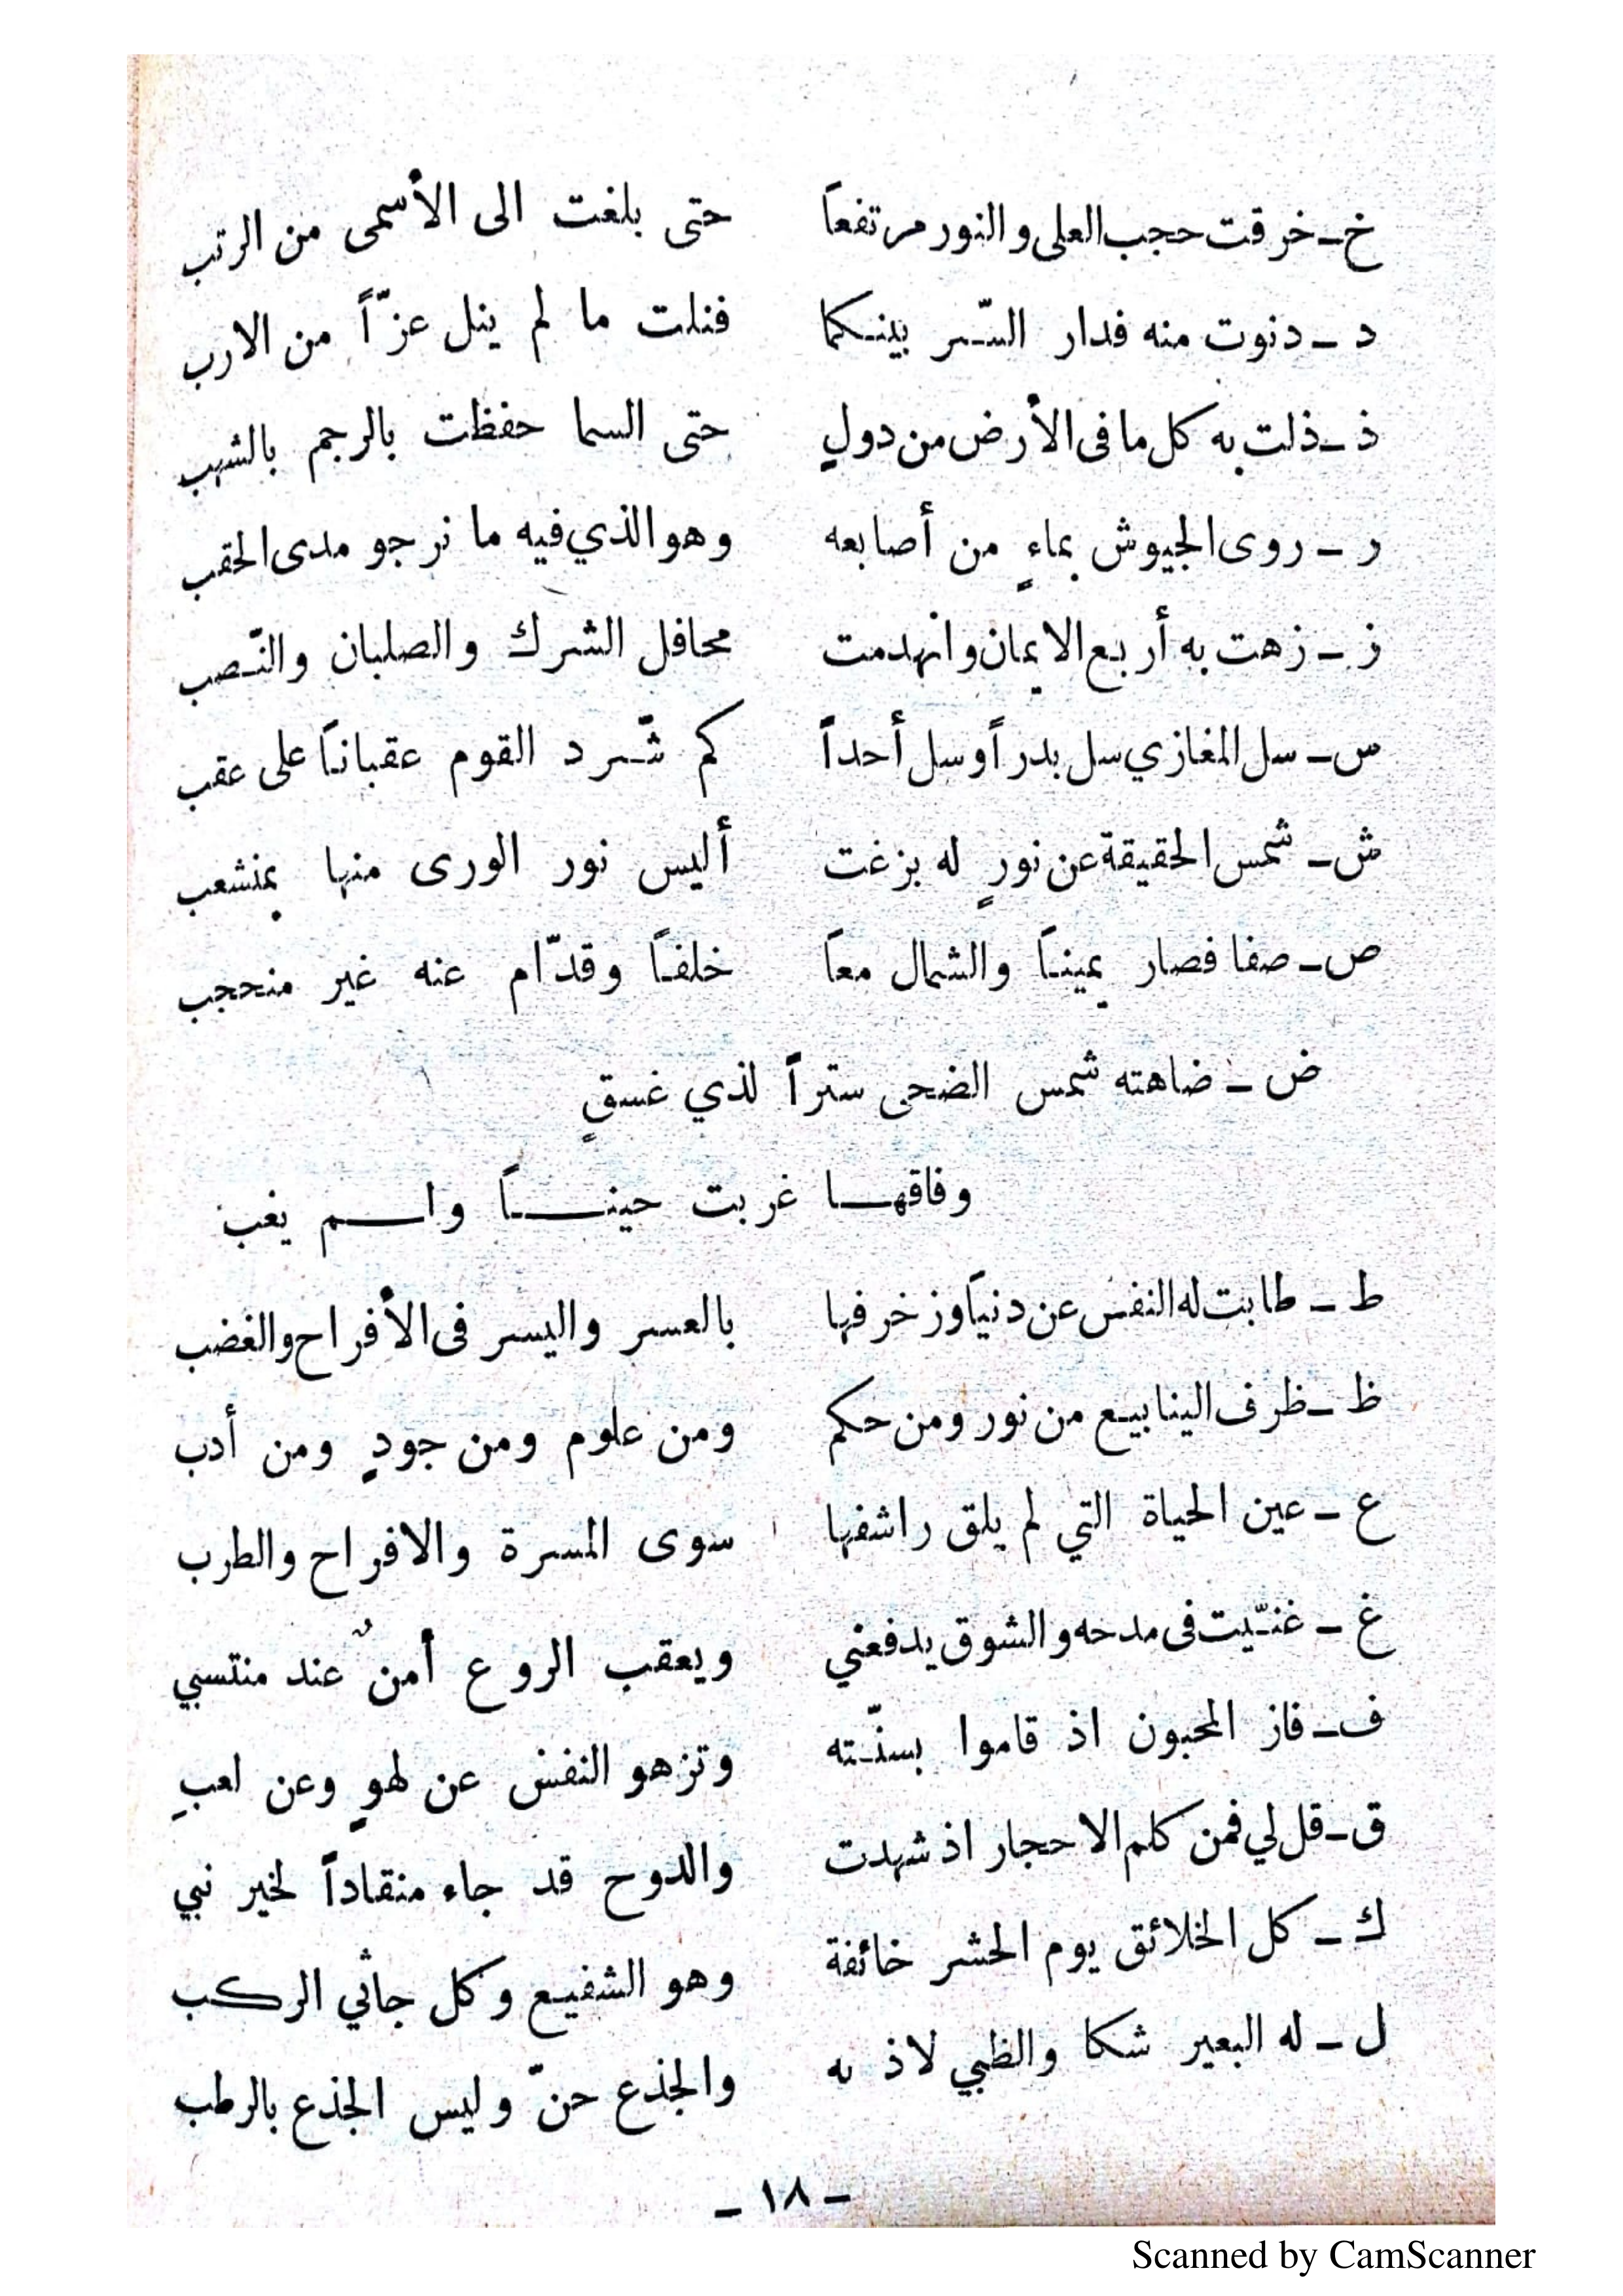 خ ــ خرقت حجب العلى والنور مرتفعاً حتى بلغت الى الأسمى من الرتب
د ــ دنوت منه فدار السّر بينكما فنلت ما لم ينل عزّاً من الارب
ذ ــ ذلت به كل ما فى الأرض من دولٍ حتى السما حفظت بالرجم بالشهب
ر ــ روى الجيوش بماءٍ من أصابعه وهو الذي فيه ما نرجو مدى الحقب
ز ــ زهت به أربع الايمان وانهدمت محافل الشرك والصلبان والنّصب
س ــ سل المغازي سل بدراً وسل أحداً كم شّرد القوم عقباناً على عقب
ش ــ شمس الحقيقة عن نورٍ له بزغت أليس نور الورى منها بمنشعب
ص ــ صفا فصار يميناً والشمال معاً خلفاً وقدّام عنه غير منحجب
ض ــ ضاهته شمس الضحى ستراً لذي غسقٍ
وفاقهــا غربت حينــاً ولــم يغب
ط ــ طابت له النفس عن دنياً وزخرفها بالعسر واليسر فى الأفراح والغضب
ظ ــ ظرف الينابيع من نور ومن حكم ومن علوم ومن جودٍ ومن أدب
ع ــ عين الحياة التي لم يلق راشفها سوى المسرة والافراح والطرب
غ ــ غنّيت فى مدحه والشوق يدفعني ويعقب الروع أمنٌ عند منتسبي
ف ــ فاز المحبون اذ قاموا بسنّته وتزهو النفس عن لهوٍ وعن لعبِ
ق ــ قل لي فمن كلم الاحجار اذ شهدت والدوح قد جاء منقاداً لخير نبي
ك ــ كل الخلائق يوم الحشر خائفة وهو الشفيع وكل جاثي الركب
ل ــ له البعير شكا والظبي لاذ به والجذع حنّ وليس الجذع بالرطب
ــ ١٨ ــ
Scanned by CamScanner